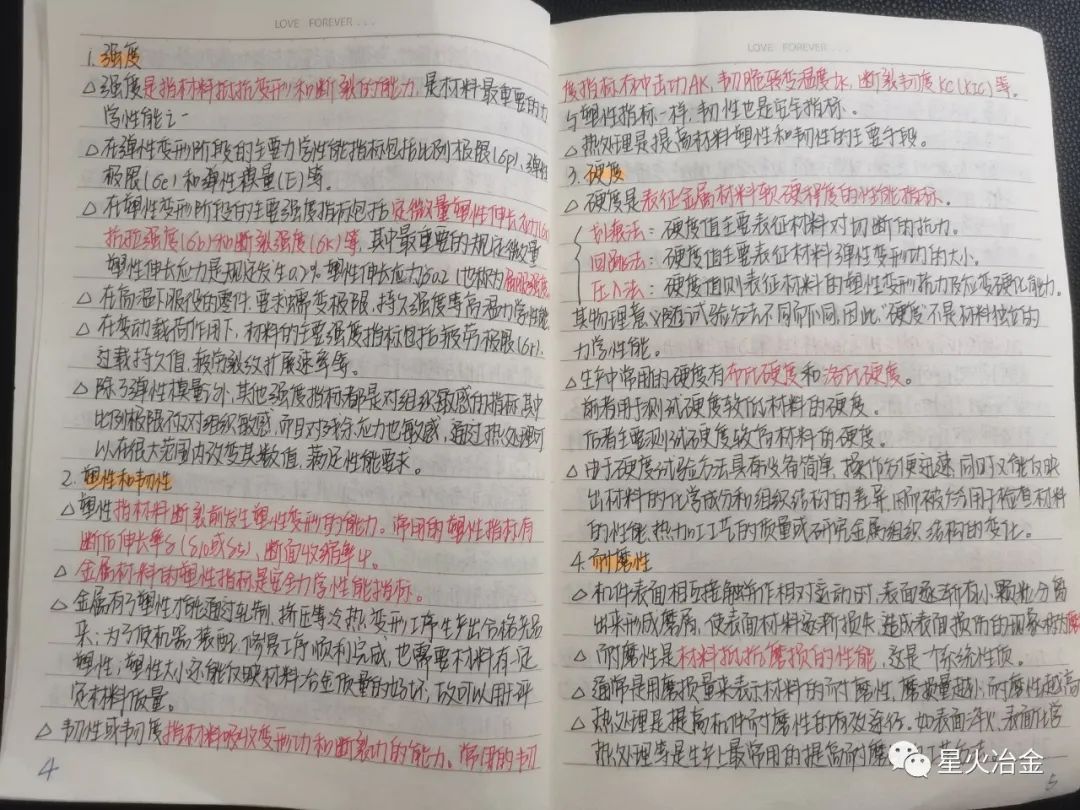 LOVE FOREVER...
1. 强度
△强度是指材料抵抗变形和断裂的能力，是材料最重要的力
学性能之一
△在弹性变形阶段的主要力学性能指标包括比例极限(6p)、弹性
极限(6e)和弹性模量(E)等。
△在塑性变形阶段的主要强度指标包括定微量塑性伸长应力(6
抗拉强度(6b)和断裂强度(6k)等，其中最重要的规定微量
塑性伸长应力是规定发生0.2%塑性伸长应力60.2(也称为屈服强度
△在高温下服役的零件，要求蠕变极限、持久强度等高温力学性能
△在变动载荷作用下，材料的主要强度指标包括疲劳极限(6r)、
过载持久值、疲劳裂纹扩展速率等。
△除了弹性模量外，其他强度指标都是对组织敏感的指标，其中
比例极限不仅对组织敏感，而且对残余应力也敏感，通过热处理可
以在很大范围内改变其数值，满足性能要求。
2. 塑性和韧性
△塑性指材料断裂前发生塑性变形的能力。常用的塑性指标有
断后伸长率δ(δ10或δ5)、断面收缩率ψ。
△金属材料的塑性指标是安全力学性能指标。
△金属有了塑性才能通过轧制、挤压等冷热变形工序生产出合格产品
来；为了使机器装配、修复工序顺利完成，也需要材料有一定
塑性；塑性大小还能反映材料冶金质量的好坏，故可以用于评
定材料质量。
△韧性或韧度指材料吸收变形功和断裂功的能力。常用的韧
4
LOVE FOREVER...
度指标有冲击功AK，韧脆转变温度tK，断裂韧度KC(KIC)等。
与塑性指标一样，韧性也是安全指标。
△热处理是提高材料塑性和韧性的主要手段。
3. 硬度
△硬度是表征金属材料软硬程度的性能指标。
划痕法：硬度值主要表征材料对切断的抗力。
回跳法：硬度值主要表征材料弹性变形功的大小。
压入法：硬度值则表征材料的塑性变形抗力及应变硬化能力。
其物理意义随试验方法不同而不同，因此“硬度”不是材料独立的
力学性能。
△生产中常用的硬度有布氏硬度和洛氏硬度。
前者用于测试硬度较低材料的硬度。
后者主要测试硬度较高材料的硬度。
△由于硬度试验方法具有设备简单、操作方便迅速，同时又能反映
出材料的化学成分和组织结构的差异，因而被广泛用于检查材料
的性能、热加工工艺的质量或研究金属组织结构的变化。
4. 耐磨性
△机件表面相互接触并作相对运动时，表面逐渐有小颗粒分离
出来形成磨屑，使表面材料逐渐损失、造成表面损伤的现象称为磨
△耐磨性是材料抵抗磨损的性能，这是一个系统性质。
△通常是用磨损量来表示材料的耐磨性，磨损量越小，耐磨性越高
△热处理是提高机件耐磨性的有效途径，如表面淬火、表面化学
热处理等是生产上最常用的提高耐磨
5
星火冶金